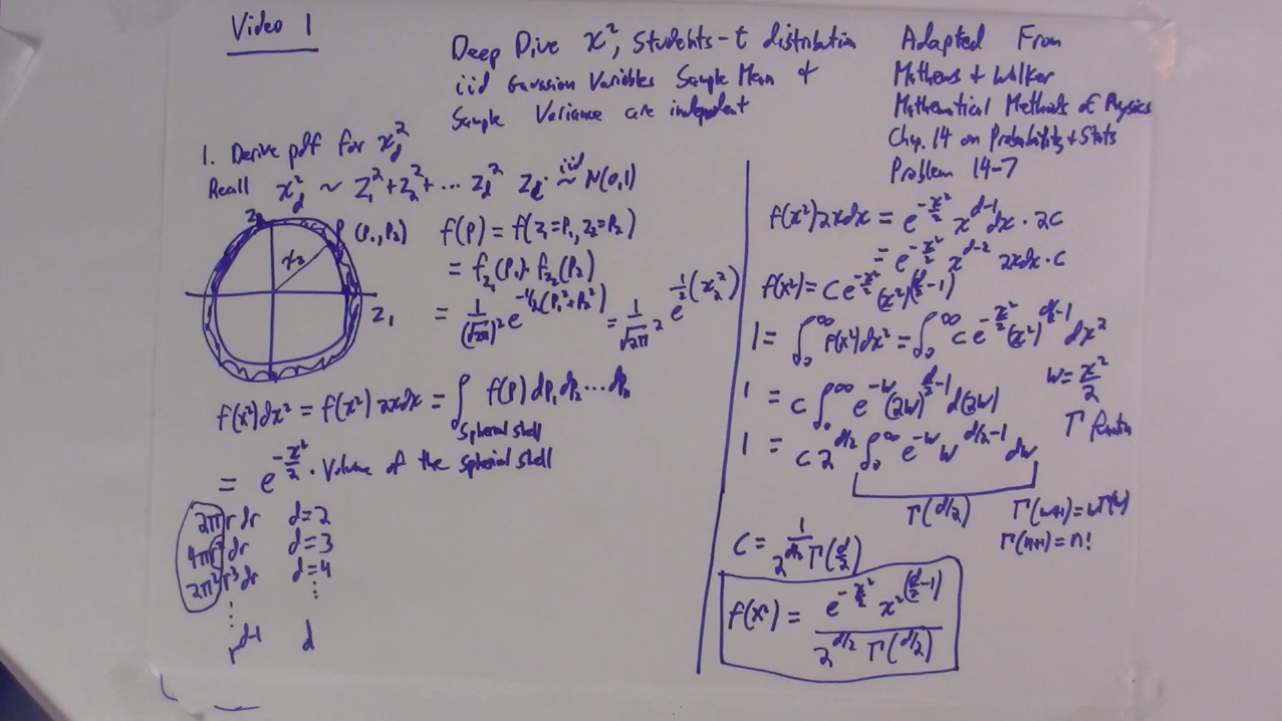 Video 1
Deep Dive χ², Students-t distribution
iid Gaussian Variables Sample Mean +
Sample Variance are independent
Adapted From
Mathews + Walker
Mathematical Methods of Physics
Chp. 14 on Probability + Stats
Problem 14-7
1. Derive pdf for χ_d²
Recall χ_d² ~ Z₁² + Z₂² + ... Z_d² Z_i iid ~ N(0,1)
Z₂
P (P₁, P₂)
χ₂
Z₁
f(P) = f(Z₁=P₁, Z₂=P₂)
= f_Z₁(P₁)·f_Z₂(P₂)
= 1/(√2π)² e^(-1/2(P₁²+P₂²)) = 1/√2π² e^(1/2(χ₂²))
f(χ²)dχ² = f(χ²) 2χdχ = ∫ f(P) dP₁ dP₂ ... dP_n
Spherical shell
= e^(-χ²/2) · Volume of the spherical shell
2πr dr d=2
4πr² dr d=3
2π²r³ dr d=4
⋮ ⋮
r^(d-1) d
f(χ²)2χdχ = e^(-χ²/2) χ^(d-1) dχ · 2c
= e^(-χ²/2) χ^(d-2) 2χdχ · c
f(χ²) = c e^(-χ²/2) (χ²)^(d/2-1)
1 = ∫₀^∞ f(χ²)dχ² = ∫₀^∞ c e^(-χ²/2) (χ²)^(d/2-1) dχ²
w = χ²/2
1 = c ∫₀^∞ e^(-w) (2w)^(d/2-1) d(2w)
Γ function
1 = c 2^(d/2) ∫₀^∞ e^(-w) w^(d/2-1) dw
Γ(d/2) Γ(n+1) = nΓ(n)
Γ(n+1) = n!
c = 1/(2^(d/2) Γ(d/2))
f(χ²) = e^(-χ²/2) χ²^(d/2-1) / (2^(d/2) Γ(d/2))